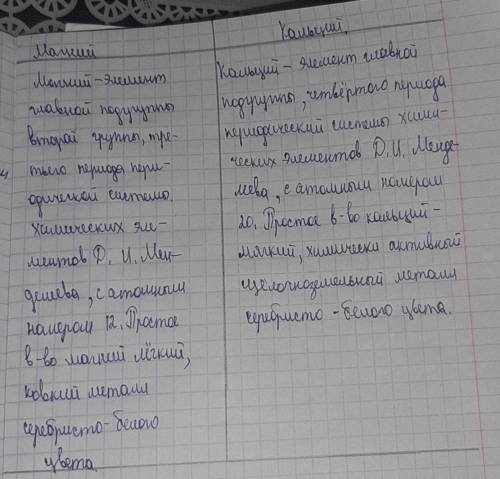 Магний
Магний - элемент
главной подгруппы
второй группы, тре-
тьего периода пери-
одической системы
химических эле-
ментов Д. И. Мен-
делеева, с атомным
номером 12. Простое
в-во магний лёгкий,
ковкий металл
серебристо-белого
цвета.
Кальций.
Кальций - элемент главной
подгруппы, четвёртого периода
периодический системы хими-
ческих элементов Д. И. Менде-
леева, с атомным номером
20. Простое в-во кальций -
мягкий, химически активный
щелочноземельный металл
серебристо - белого цвета.